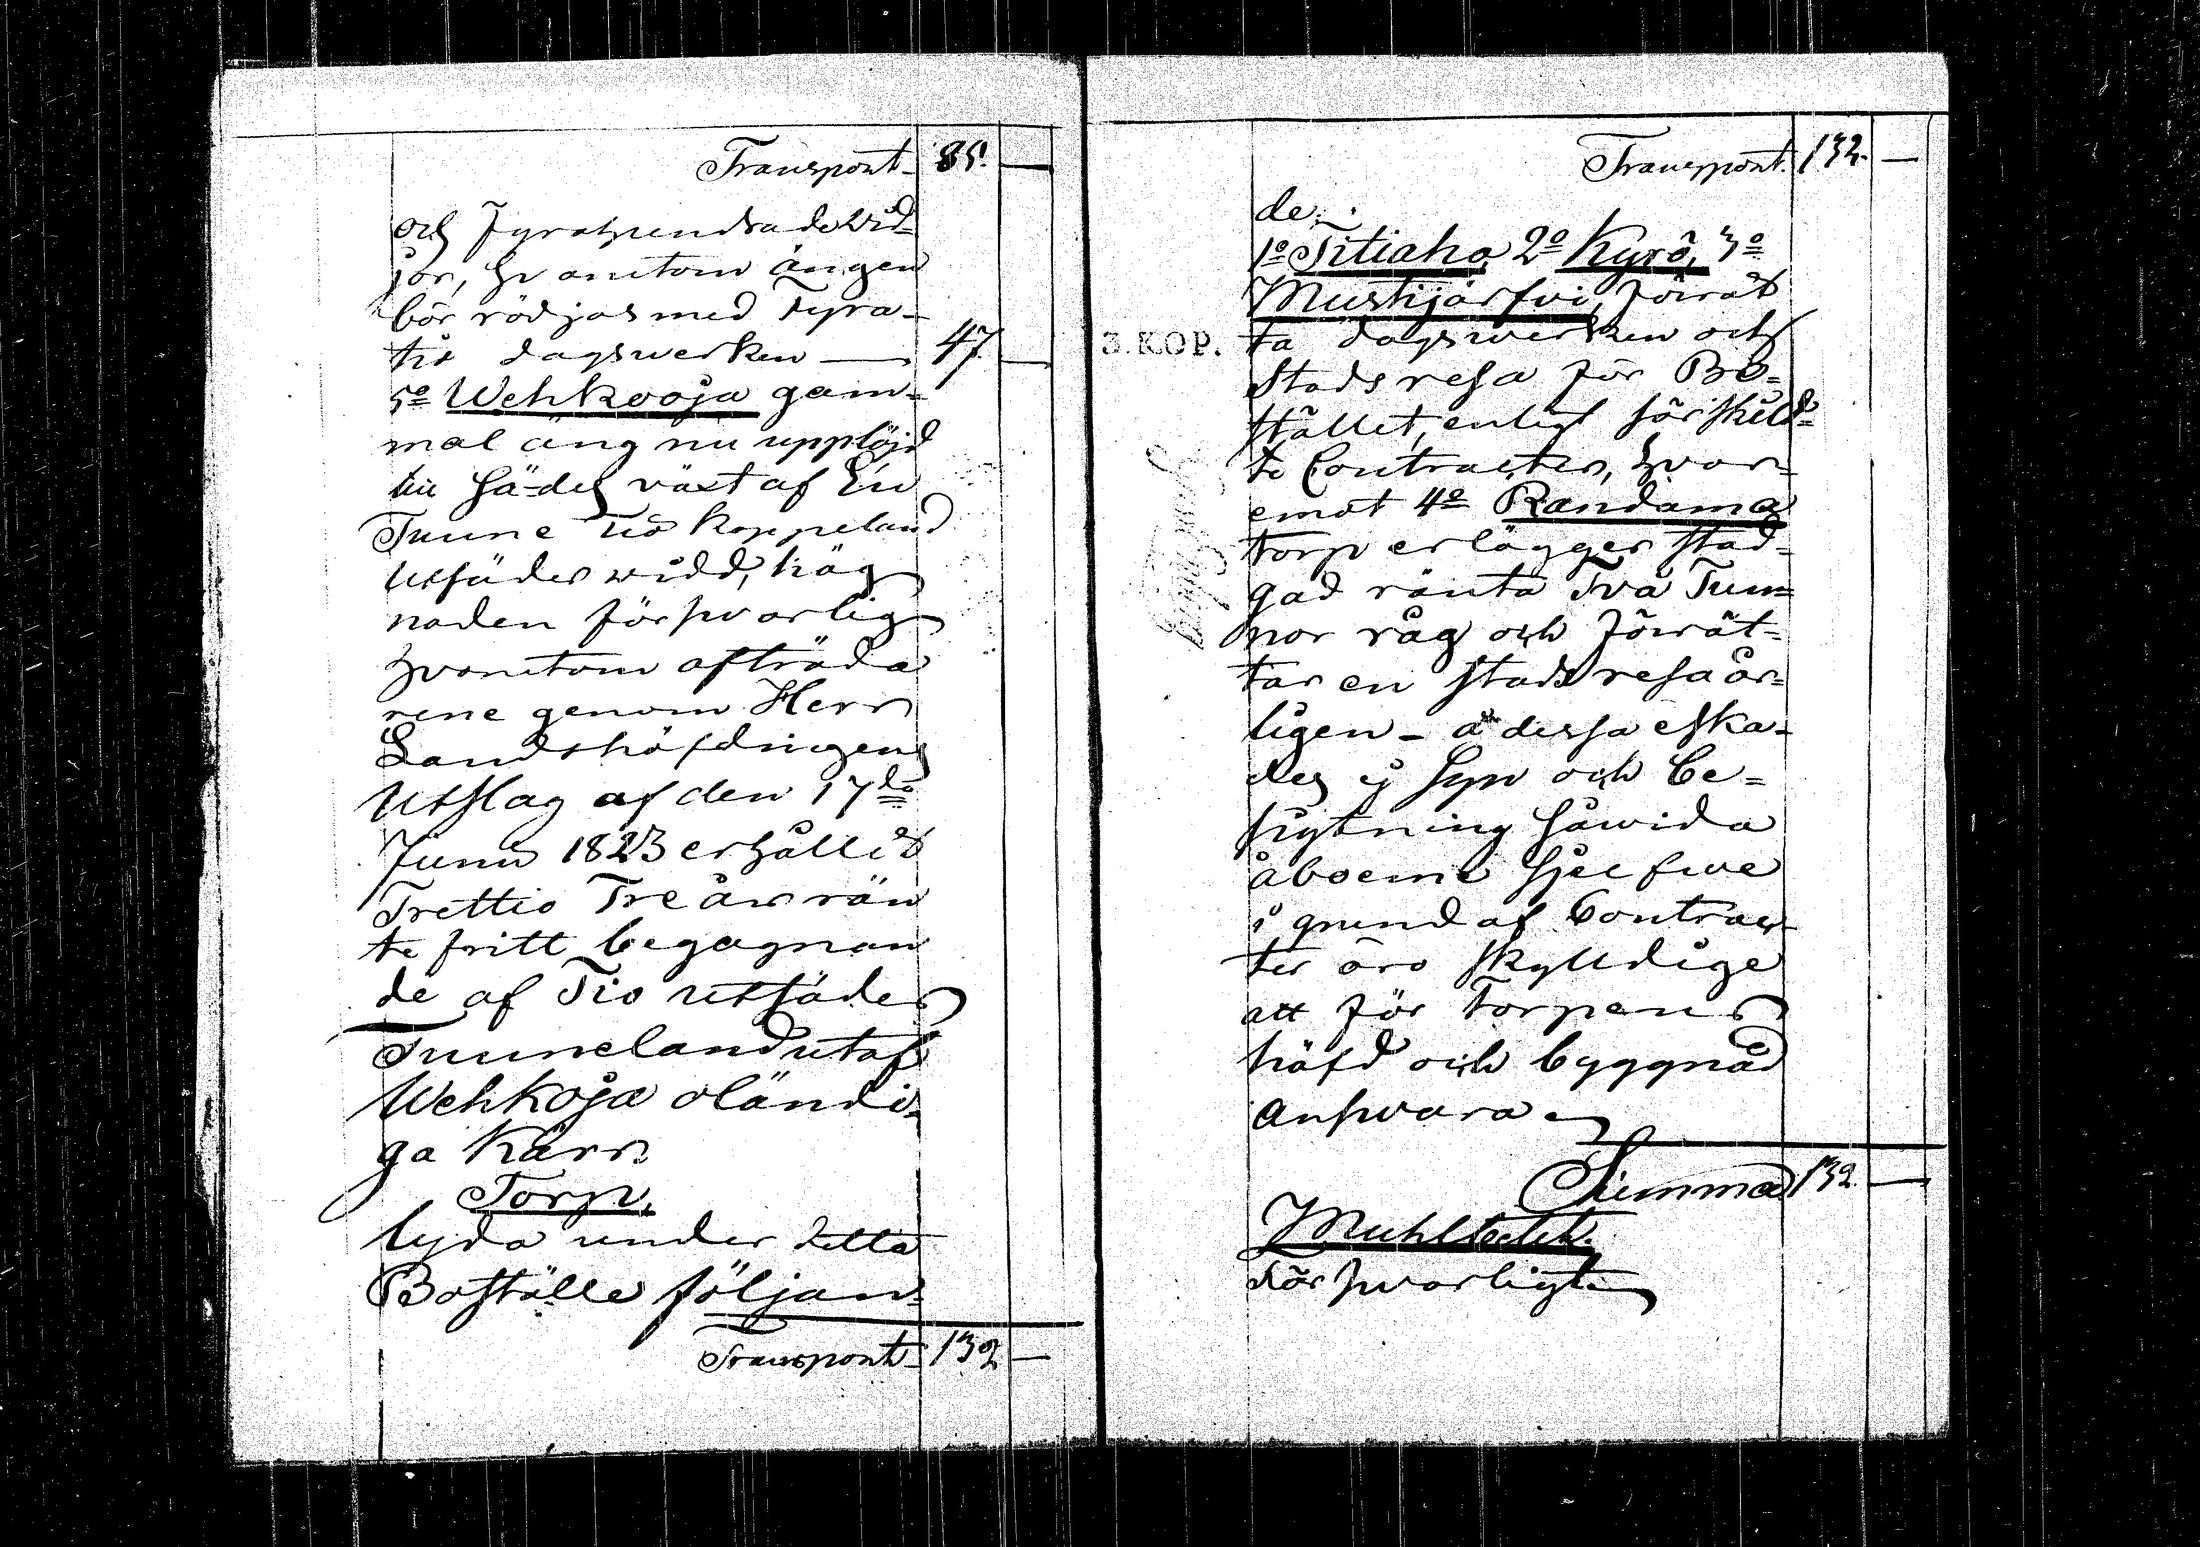 Transport 85. —
och Fyrahundrade vid-
jor, hvarutom ängen
bör rödjas med Fyra-
tio dagsverken — 47. —
5o Wehkooja gam-
mal äng nu upplöjd
till sä-deswäxt af En
Tunne Tio kappeland
utsädes widd, häg
naden försvarlig
hvarutom afträda
rene genom Herr
Landshöfdingens
Utslag af den 17de
Junii 1823 erhållit
Trettio Tre års rän
te fritt begagnan
de af Tio utsädes
Tunneland utaf
Wehkoja oländi-
ga Kärr.
Torp,
lyda under detta
Boställe följan-
Transport 132 —
Transport. 132. —
de:
1o Titiaho, 2o Kyrö, 3o
Mustijärfvi, förrät
3. KOP. ta dagsverken och
Stadsresa för Bo-
stället, enligt särskild-
te Contracter, hvar-
emot 4o Randama
torp erlägger stad-
gad ränta Två Tun-
nor råg och förrät-
tar en stadsresa år-
ligen – å dessa eska-
des ej Syn och be-
sigtning såvida
åboerne sjelfve
i grund af Contrac-
ter äro skyldige
att för Torpens
häfd och byggnad
ansvara
Summa 132 —
Muhlbetet.
Försvarligt